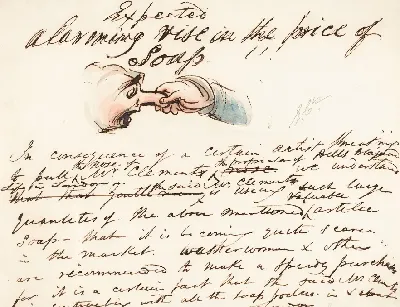 Expected
alarming rise in the price of
Soap !!
In consequence of a certain artist threat'ning
to pull the nose of Mr Clements the proprietor of Bells
nose we understand
the said Mr Clements
that is using such large
quantities of the above mentioned valuable article
Soap - that it is becoming quite scarce
in the market. Washerwomen & others
are recommended to make a speedy purchase
for it is a certain fact that the said Mr Clements
with all the soap